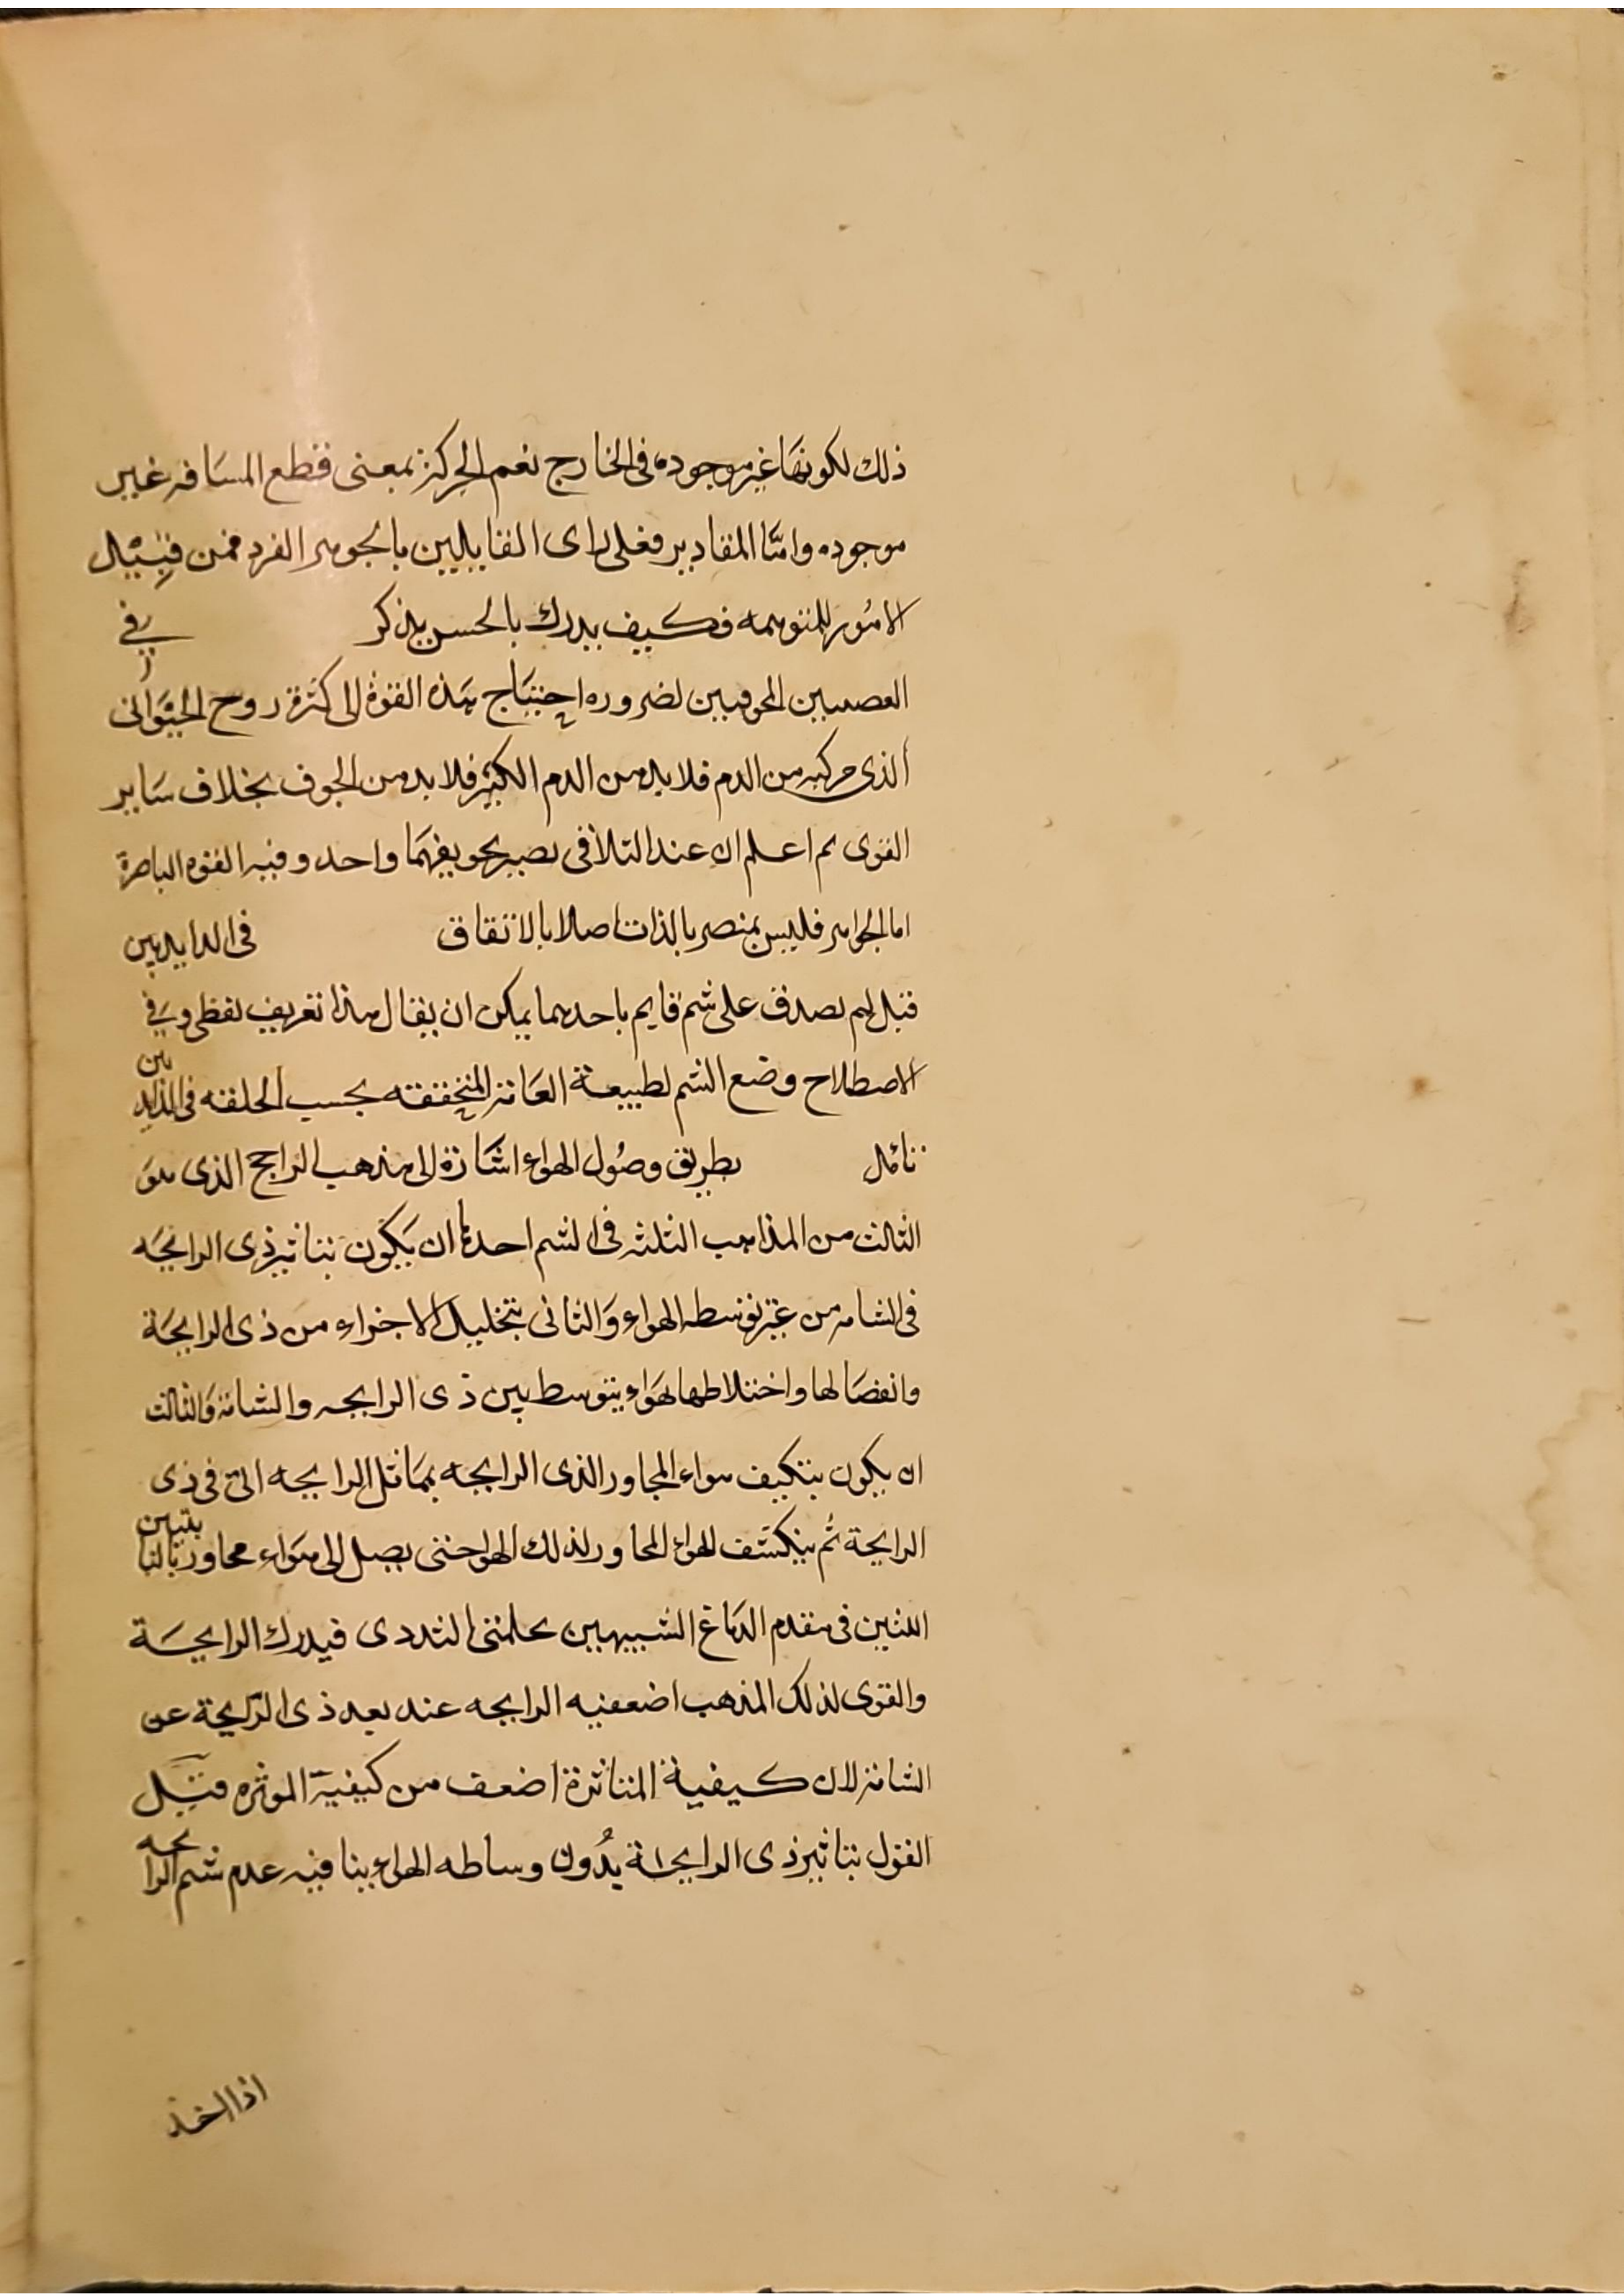 ذلك لكونها غير موجوده فى الخارج نعم الحركة بمعنى قطع المسافه غير
موجوده وامّا المقادير فعلى راى القايلين بالجوهر الفرد فمن قبيل
الامور المتوهمه فكيف يدرك بالحس يذكر في
العصبيين المجوفيين لضروره احتياج هذه القوة الى كثرة روح الحيوانى
الذى مركبه من الدم فلابد من الدم الكثير فلابد من الجوف بخلاف ساير
القوى ثم اعلم ان عند التلاقى يصير تجويفهما واحد وفيه القوه الباصرة
اما الجواهر فليس بمنصر بالذات اصلا بالاتفاق فى الدايدين
قبل لهم يصدق على شم قايم باحدهما يمكن ان يقال هذا تعريف لفظى وفي
الاصطلاح وضع الشم لطبيعة العامة المتحققه بحسب الخلقه فى الدايدين
تامل بطريق وصول الهواء اشارة الى مذهب الراجح الذى هو
الثالث من المذاهب الثلثه فى الشم احدها ان يكون بتاثير ذى الرايحه
فى الشامه من غير توسط الهواء والثانى بتخليل الاجزاء من ذى الرايحة
وانفصالها واختلاطها لهواء يتوسط بين ذى الرايحه والشامة والثالث
ان يكون بتكيف هواء المجاور الذى الرايحه بمماثل الرايحه التى فى ذى
الرايحة ثم ينكشف الهواء المجاور لذلك الهوا حتى يصل الى هواء مجاور بالنابتين
اللتين فى مقدم الدماغ الشبيهين بحلمتى الثدى فيدرك الرايحة
والقوى لذلك المذهب اضعفيه الرايحه عند بعد ذى الرايحة عن
الشامة لان كيفية المتاثرة اضعف من كيفية الموثره قيل
القول بتاثير ذى الرايحة بدون وساطه الهواء ينافيه عدم شم الرايحه
اذا اخذ